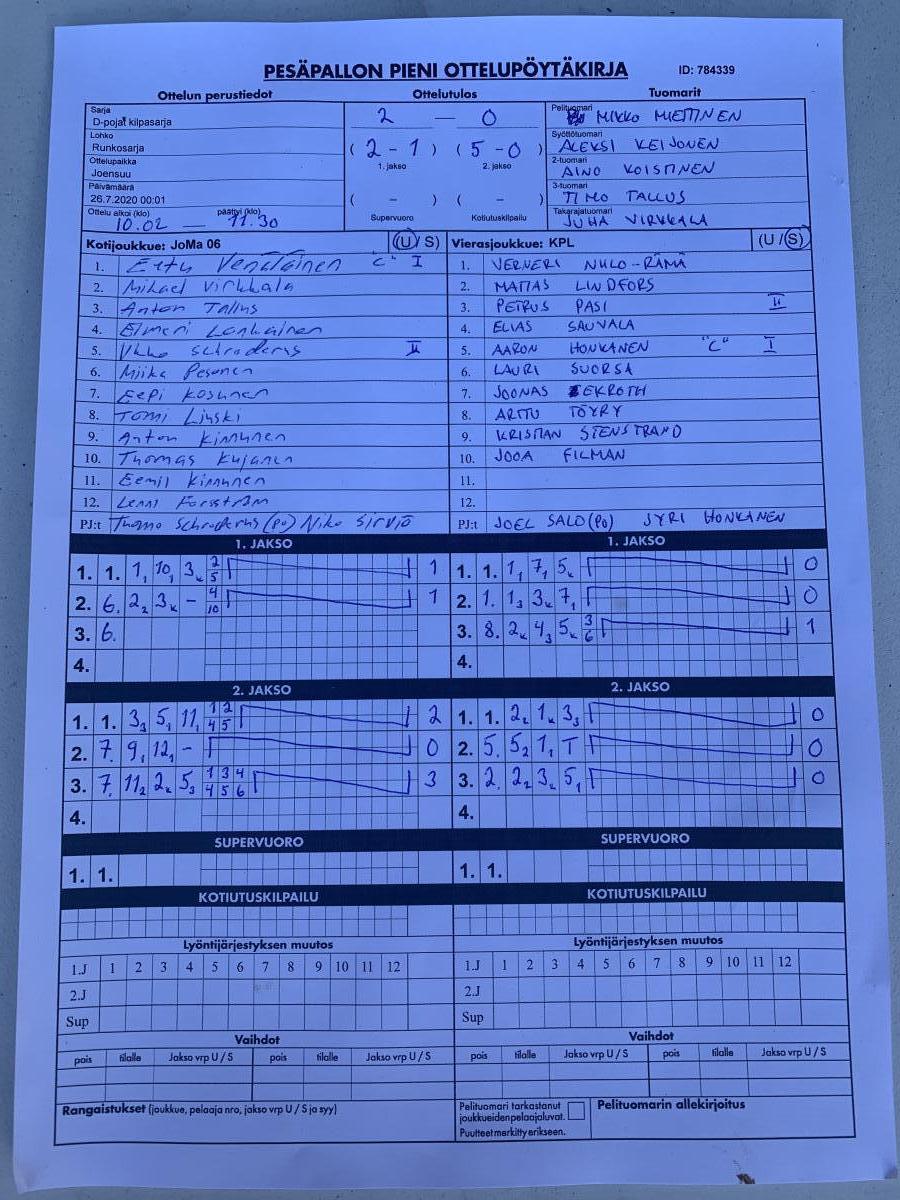 PESÄPALLON PIENI OTTELUPÖYTÄKIRJA ID: 784339
Ottelun perustiedot Ottelutulos Tuomarit
Sarja
D-pojat kilpasarja
Lohko
Runkosarja
Ottelupaikka
Joensuu
Päivämäärä
26.7.2020 00:01
Ottelu alkoi (klo) päättyi (klo)
10.02 — 11.30
2 — 0
(2 - 1) (5 - 0)
1. jakso 2. jakso
( - ) ( - )
Supervuoro Kotiutuskilpailu
Pelituomari
MIKKO MIETTINEN
Syöttötuomari
ALEKSI KEIJONEN
2-tuomari
AINO KOISTINEN
3-tuomari
TIMO TALLUS
Takarajatuomari
JUHA VIRKKALA
Kotijoukkue: JoMa 06 (U/S)
1. Eetu Venäläinen "C" I
2. Mikael Virkkala
3. Anton Tallus
4. Elmeri Lonkainen
5. Ukko Schroderus II
6. Miika Pesonen
7. Eepi Kosunen
8. Tomi Linski
9. Anton Kinnunen
10. Thomas Kujanen
11. Eemil Kinnunen
12. Lenni Forsström
PJ:t Thomo Schroderus (PO) Niko Sirviö
Vierasjoukkue: KPL (U/S)
1. VERNERI NULO-RÄMÄ
2. MATIAS LINDFORS
3. PETRUS PASI II
4. ELIAS SAUVALA
5. AARON HONKANEN "C" I
6. LAURI SUORSA
7. JOONAS EKROTH
8. ARTTU TÖYRY
9. KRISTIAN STENSTRAND
10. JOOA FILMAN
11.
12.
PJ:t JOEL SALO (PO) JYRI HONKANEN
1. JAKSO
1. 1. 1, 10, 3x 2 5 1
2. 6. 2 2 3x - 4 10 1
3. 6.
4.
1. JAKSO
1. 1. 1, 7, 5x 0
2. 1. 1 3 3x 7, 0
3. 8. 2x 4 3 5x 3 6 1
4.
2. JAKSO
1. 1. 3 3 5, 11, 1 2 4 5 2
2. 7. 9, 12, - 0
3. 7. 11 2 2x 5 3 1 3 4 4 5 6 3
4.
2. JAKSO
1. 1. 2 2 1x 3 3 0
2. 5. 5 2 1, T 0
3. 2. 2 2 3x 5, 0
4.
SUPERVUORO
1. 1.
SUPERVUORO
1. 1.
KOTIUTUSKILPAILU
KOTIUTUSKILPAILU
Lyöntijärjestyksen muutos
1.J 1 2 3 4 5 6 7 8 9 10 11 12
2.J
Sup
Lyöntijärjestyksen muutos
1.J 1 2 3 4 5 6 7 8 9 10 11 12
2.J
Sup
Vaihdot
pois tilalle Jakso vrp U / S pois tilalle Jakso vrp U / S
Vaihdot
pois tilalle Jakso vrp U / S pois tilalle Jakso vrp U / S
Rangaistukset (joukkue, pelaaja nro, jakso vrp U / S ja syy)
Pelituomari tarkastanut
joukkueiden pelaajaluvat.
Puutteet merkitty erikseen.
Pelituomarin allekirjoitus